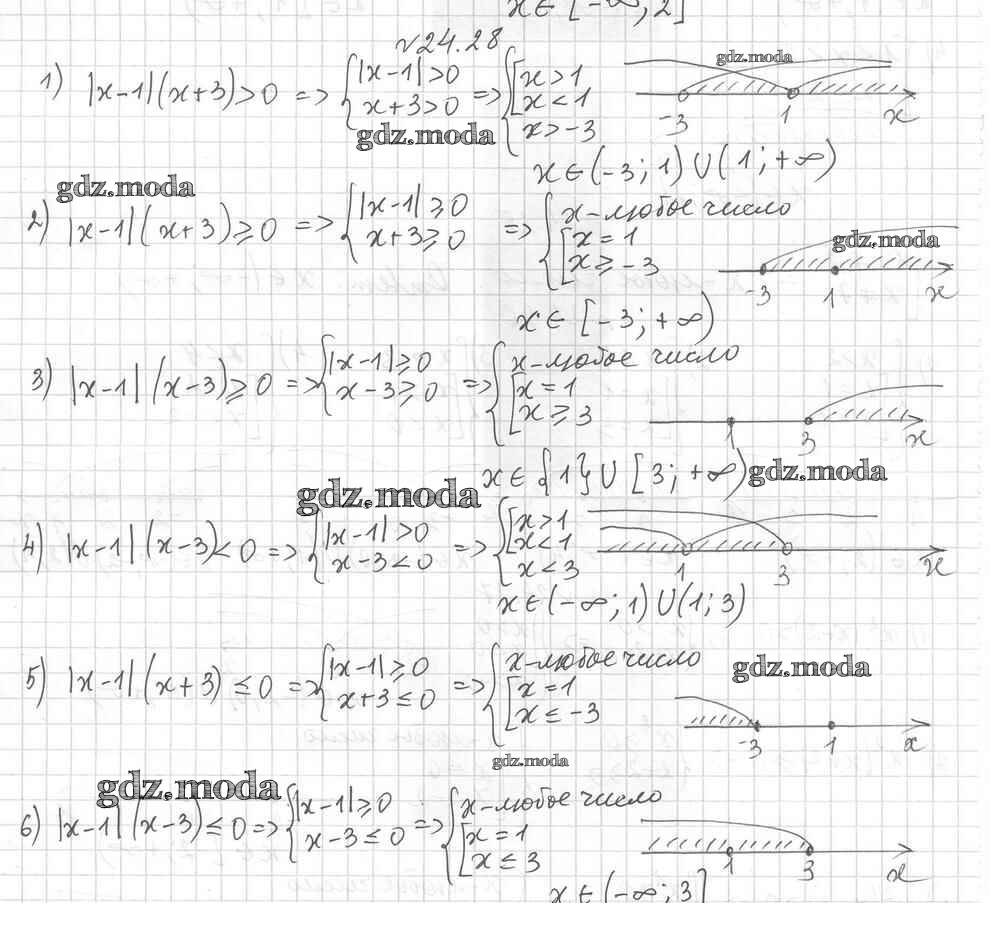 x ∈ [-∞; 2]
№24.28
1) |x-1|(x+3)>0 => { |x-1|>0 x+3>0 => { [ x>1 x<1 x>-3
-3 1 x
gdz.moda
gdz.moda
x ∈ (-3; 1) ∪ (1; +∞)
gdz.moda
2) |x-1|(x+3)≥0 => { |x-1|≥0 x+3≥0 => { x-любое число [ x=1 x≥-3
gdz.moda
-3 1 x
x ∈ [-3; +∞)
3) |x-1|(x-3)≥0 => { |x-1|≥0 x-3≥0 => { x-любое число [ x=1 x≥3
1 3 x
x ∈ {1} ∪ [3; +∞)
gdz.moda
gdz.moda
4) |x-1|(x-3)<0 => { |x-1|>0 x-3<0 => { [ x>1 x<1 x<3
1 3 x
x ∈ (-∞; 1) ∪ (1; 3)
5) |x-1|(x+3)≤0 => { |x-1|≥0 x+3≤0 => { x-любое число [ x=1 x≤-3
gdz.moda
-3 1 x
gdz.moda
gdz.moda
6) |x-1|(x-3)≤0 => { |x-1|≥0 x-3≤0 => { x-любое число [ x=1 x≤3
1 3 x
x ∈ (-∞; 3]